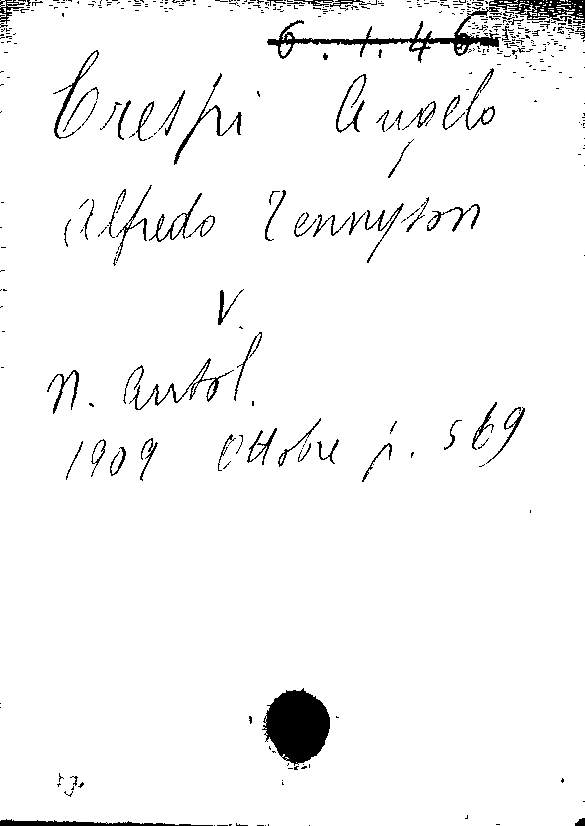 6.1.46.
Crespi Angelo
Alfredo Tennyson
V.
N. Antol.
1909 Ottobre p. 569